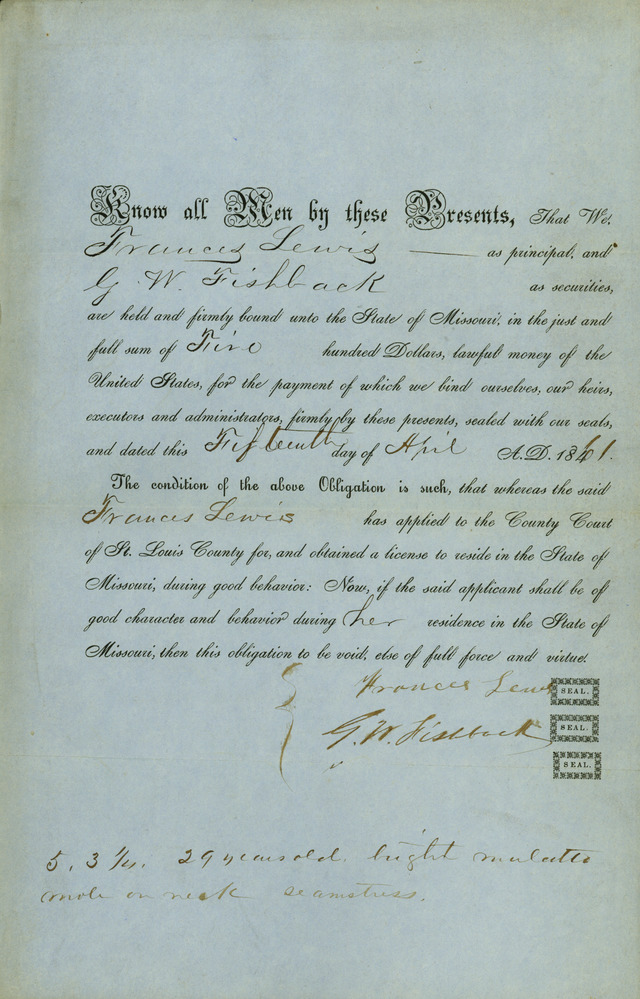 Know all Men by these Presents, That We,
Frances Lewis as principal, and
G. W. Fishback as securities,
are held and firmly bound unto the State of Missouri, in the just and
full sum of Five hundred Dollars, lawful money of the
United States, for the payment of which we bind ourselves, our heirs,
executors and administrators, firmly by these presents, sealed with our seals,
and dated this Fifteenth day of April A.D. 1861.
The condition of the above Obligation is such, that whereas the said
Frances Lewis has applied to the County Court
of St. Louis County for, and obtained a license to reside in the State of
Missouri, during good behavior: Now, if the said applicant shall be of
good character and behavior during her residence in the State of
Missouri, then this obligation to be void, else of full force and virtue.
Frances Lewis SEAL.
G. W. Fishback SEAL.
SEAL.
5. 3 1/4. 29 years old. bright mulatto
mole on neck seamstress.